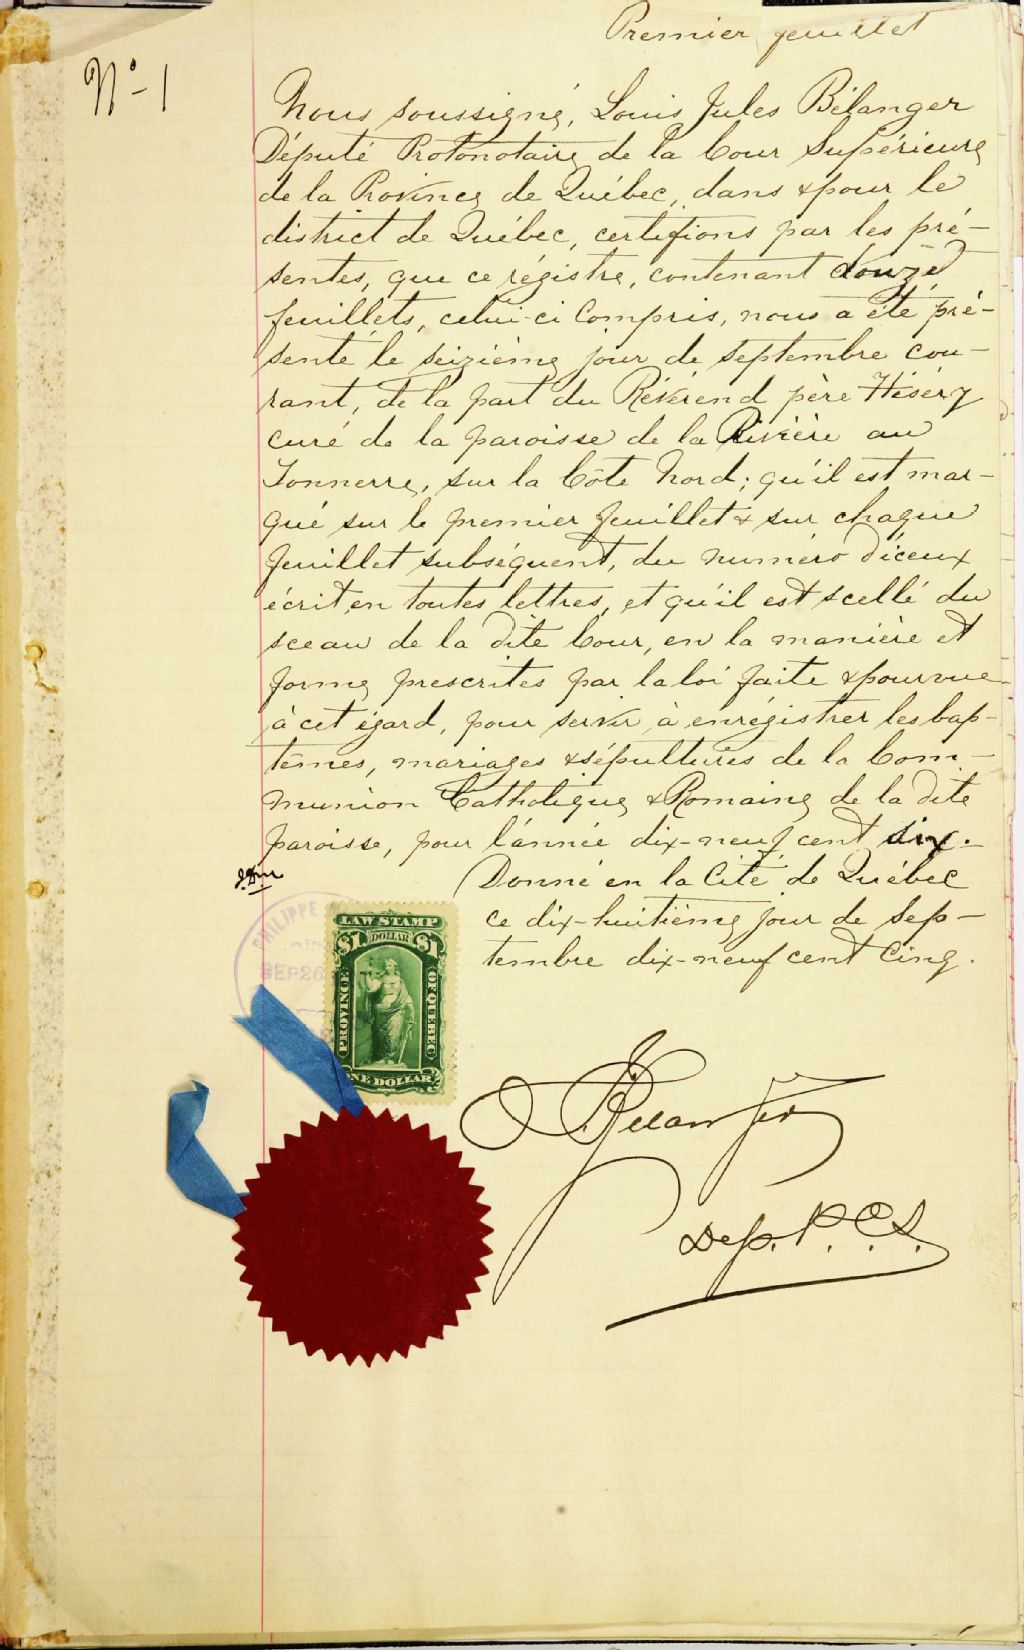 Premier feuillet
N° - 1
Nous soussigné, Louis Jules Bélanger
Député Protonotaire de la Cour Supérieure
de la Province de Québec, dans & pour le
district de Québec, certifions par les pré-
sentes, que ce régistre, contenant douze
feuillets, celui-ci compris, nous a été pré-
senté le seizième jour de septembre cou-
rant, de la part du Révérend père Hésery
curé de la paroisse de la Rivière au
Tonnerre, sur la Côte Nord; qu'il est mar-
qué sur le premier feuillet & sur chaque
feuillet subséquent, du numéro d'iceux
écrit en toutes lettres, et qu'il est scellé du
sceau de la dite Cour, en la manière et
forme prescrites par la loi faite & pourvue
à cet égard, pour servir à enrégistrer les bap-
têmes, mariages & sépultures de la Com-
munion Catholique & Romaine de la dite
paroisse, pour l'année dix-neuf cent six.-
Donné en la Cité de Québec
ce dix-huitième jour de Sep-
tembre dix-neuf cent Cinq.
PHILIPPE
SEP 26
LAW STAMP
$1 DOLLAR $1
PROVINCE OF QUEBEC
ONE DOLLAR
Bélanger
Dep. P. C. S.